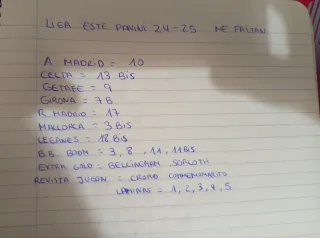 LIGA ESTE PANINI 24-25 ME FALTAN
A MADRID = 10
CELTA = 13 BIS
GETAFE = 9
GIRONA = 7 B
R. MADRID = 17
MALLORCA = 3 BIS
LEGANES = 18 BIS
B.B. BOOM = 3, 8, 11, 11 BIS
EXTRA GOLD = BELLINGHAM, SORLOTH
REVISTA JUGON = CROMO CONMEMORATIVO
LAMINAS = 1, 2, 3, 4, 5